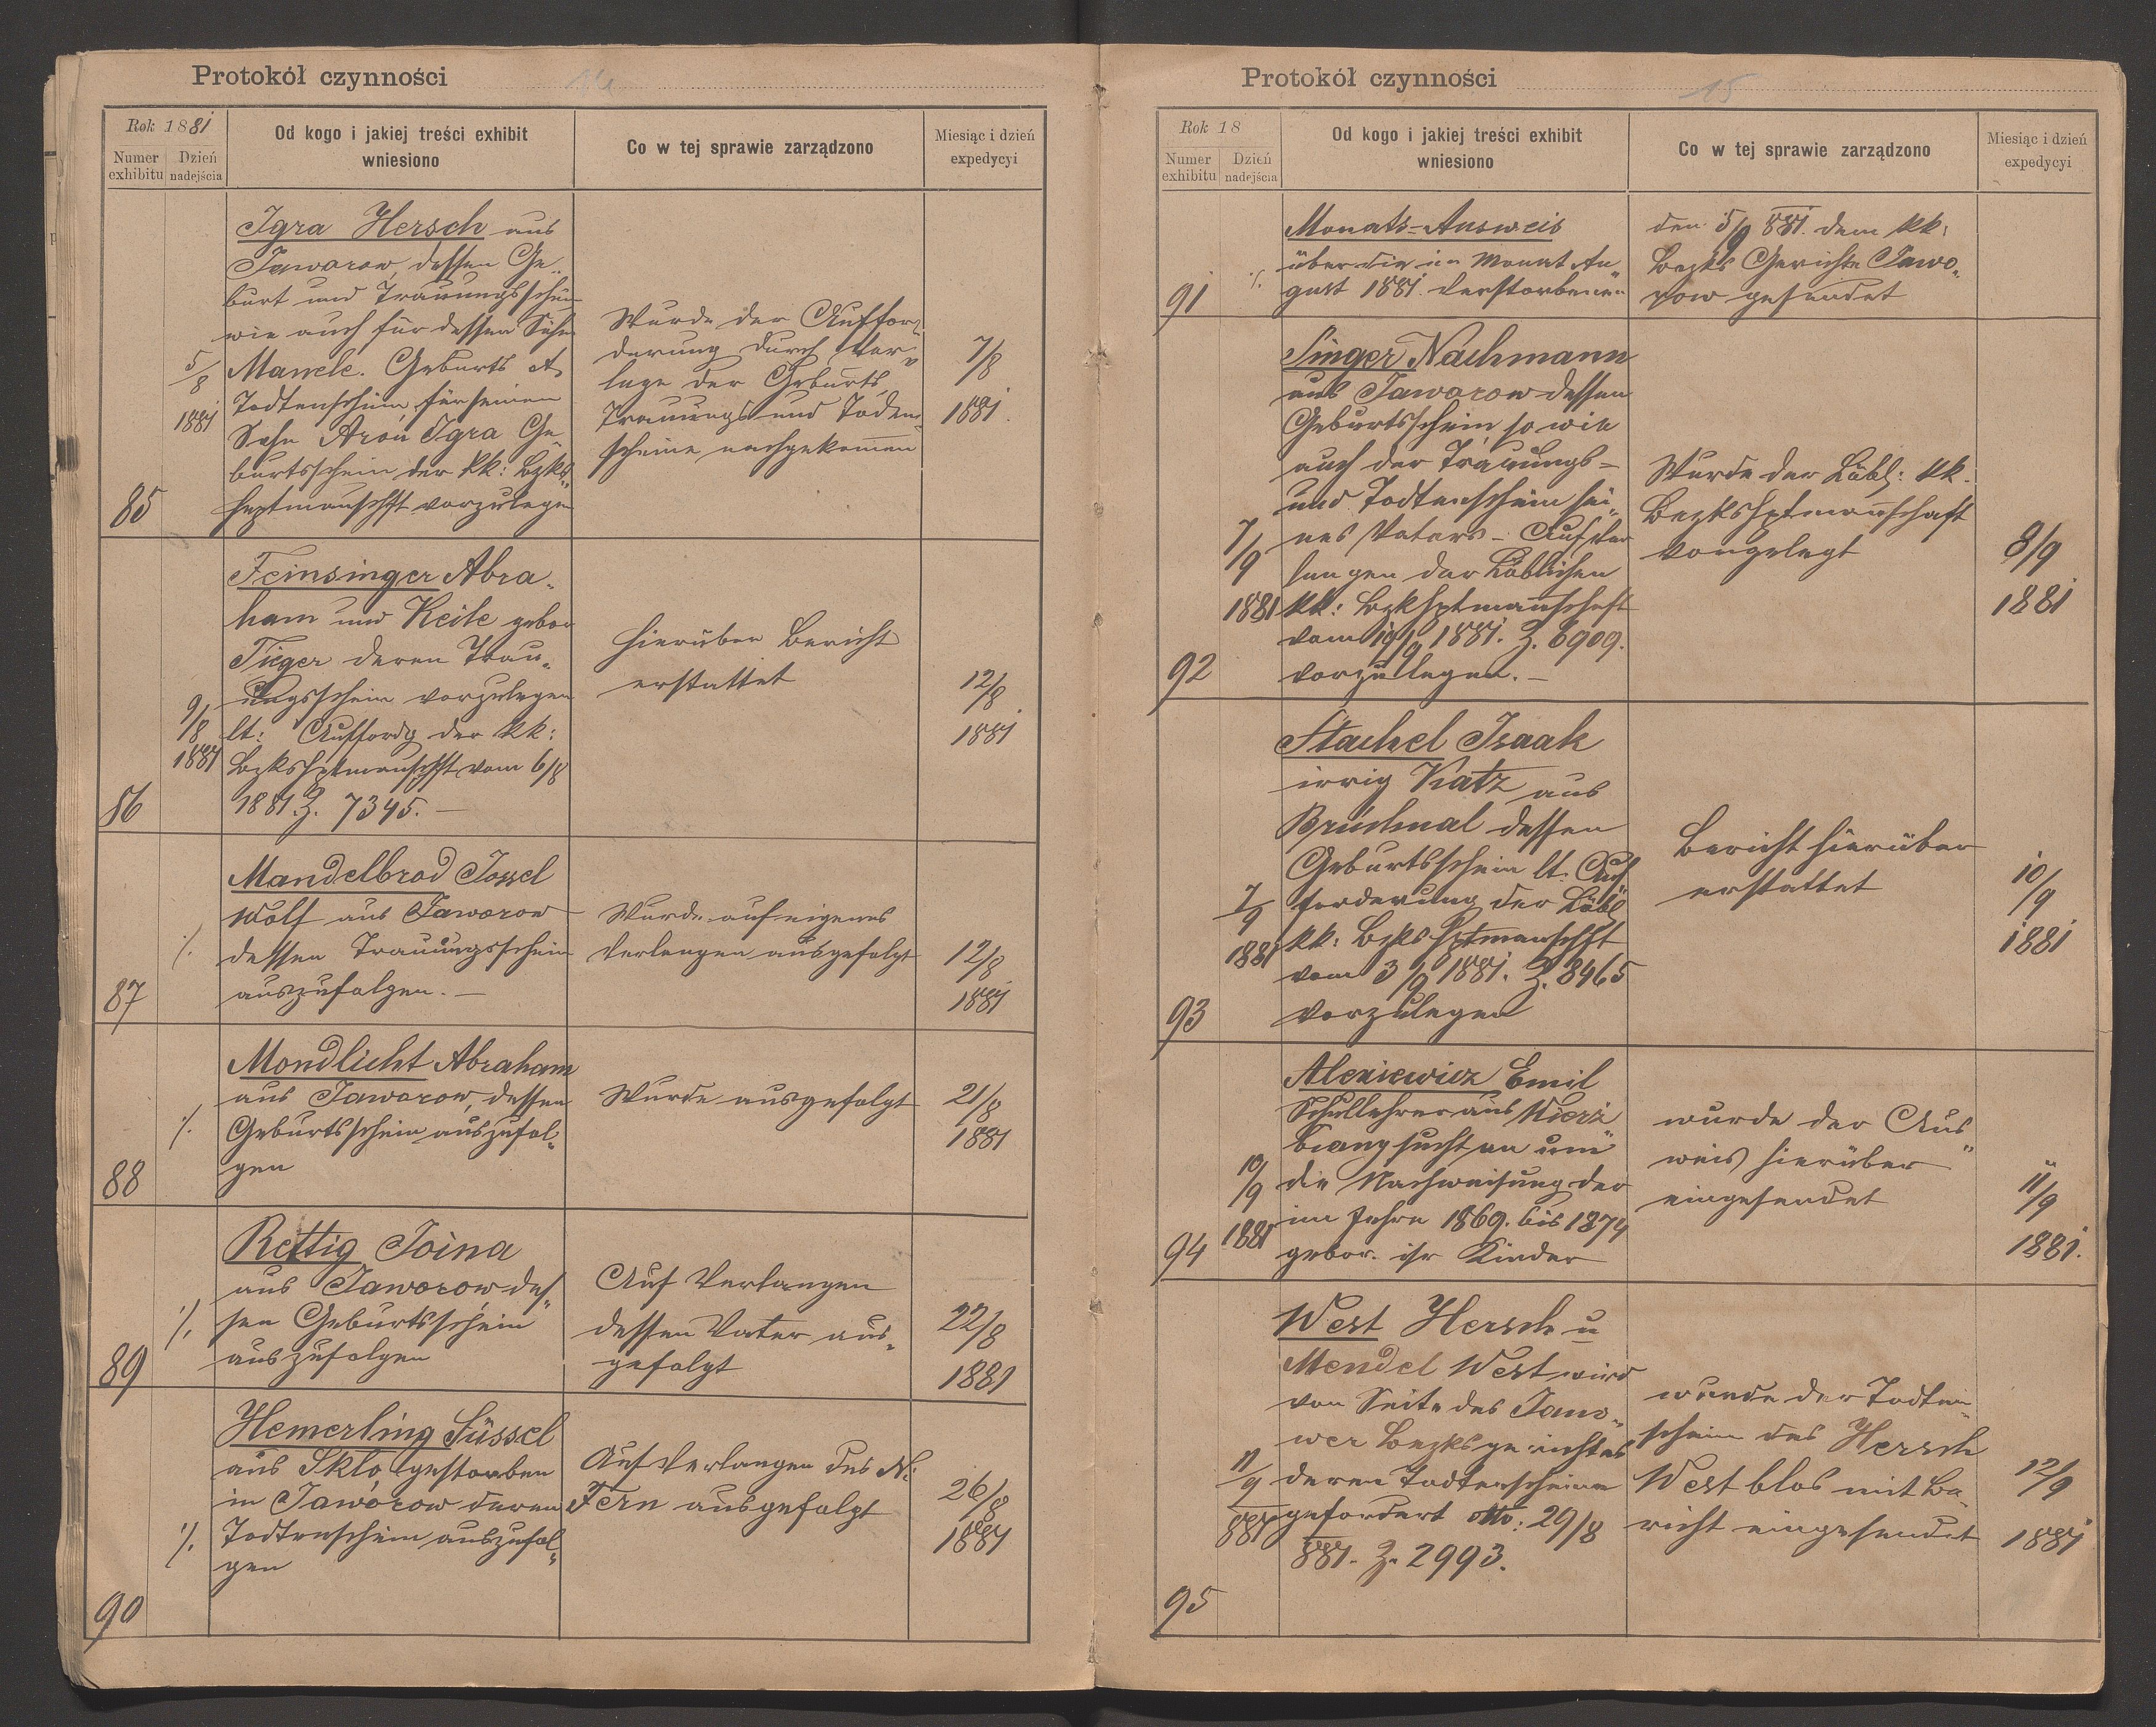 Protokół czynności 14
Rok 1881
Numer exhibitu
Dzień nadejścia
Od kogo i jakiej treści exhibit
wniesiono
Co w tej sprawie zarządzono
Miesiąc i dzień
expedycyi
85
5/8
1881
Igra Hersch aus
Jaworow, dessen Ge„
burt und Trauungsschein
wie auch für dessen Sohn
Manele. Geburts
Todtenschein, für seinen
Sohn Aron Igra Ge„
burtsschein der kk: Bzks„
hptmanschft vorzulegen
Wurde der Auffor„
derung durch Vor„
lage der Geburts
Trauungs und Todten„
scheine nachgekommen
7/8
1881.
86
9/8
1881
Feinsinger Abra„
ham und Keile gebor
Tieger deren Trau„
ungsschein vorzulegen
lt: Auffordg der kk:
Bzkshptmanschft vom 6/8
1881 Z. 7345. —
Hierüber Bericht
erstattet
12/8
1881
87
·/.
Mandelbrod Jossel
Wolf aus Jaworow
dessen Trauungsschein
auszufolgen. —
Wurde auf eigenes
Verlangen ausgefolgt
12/8
1881
88
·/.
Mondlicht Abraham
aus Jaworow, dessen
Geburtsschein auszufol„
gen
Wurde ausgefolgt
21/8
1881
89
·/.
Rettig Joina
aus Jaworow des„
sen Geburtsschein
auszufolgen
Auf Verlangen
dessen Vater aus„
gefolgt
22/8
1881
90
·/.
Hemerling Süssel
aus Skło, gestorben
in Jaworow deren
Todtenschein auszufol„
gen
Auf Verlangen des N:
Fern ausgefolgt
26/8
1881
Protokół czynności 15
Rok 18
Numer exhibitu
Dzień nadejścia
Od kogo i jakiej treści exhibit
wniesiono
Co w tej sprawie zarządzono
Miesiąc i dzień
expedycyi
91
·/.
Monats=Ausweis
über die im Monat Au„
gust 1881. Verstorbenen
den 5/9 881. dem kk:
Bezks Gerichte Jawo„
row gesendet
92
7/9
1881
Singer Nachmann
aus Jaworow dessen
Geburtsschein so wie
auch der Trauungs=
und Todtenschein sei„
nes Vaters — Auf Ver
langen der Löblichen
kk: Bzkhptmannschaft
vom 1881. Z. 6909.
vorzulegen. —
Wurde der Löbl: kk.
Bezkshptmannschaft
vorgelegt
8/9
1881
93
7/9
1881
Stachel Isaak
irrig Katz aus
Bruchnal dessen
Geburtsschein lt. Auf
forderung der Löbl
kk: Bzks Hptmanschft
vom 3/9 1881. Z. 8465
vorzulegen
Bericht hierüber
erstattet
10/9
1881
94
10/9
1881
Alexiewicz Emil
Schullehrer aus Wierz„
biany sucht an um
die Nachweisung der
im Jahre 1869. bis 1874
gebor. isr Kinder
wurde der Aus„
weis hierüber
eingesendet
11/9
1881.
95
11/9
881
West Hersch u
Mendel West wird
von Seite des Jano„
wer Bezksgerichtes
deren Todtenscheine
gefordert dtto: 29/8
881. Z. 2993.
wurde der Todten„
schein des Hersch
West blos mit Be„
richt eingesendet
12/9
1881